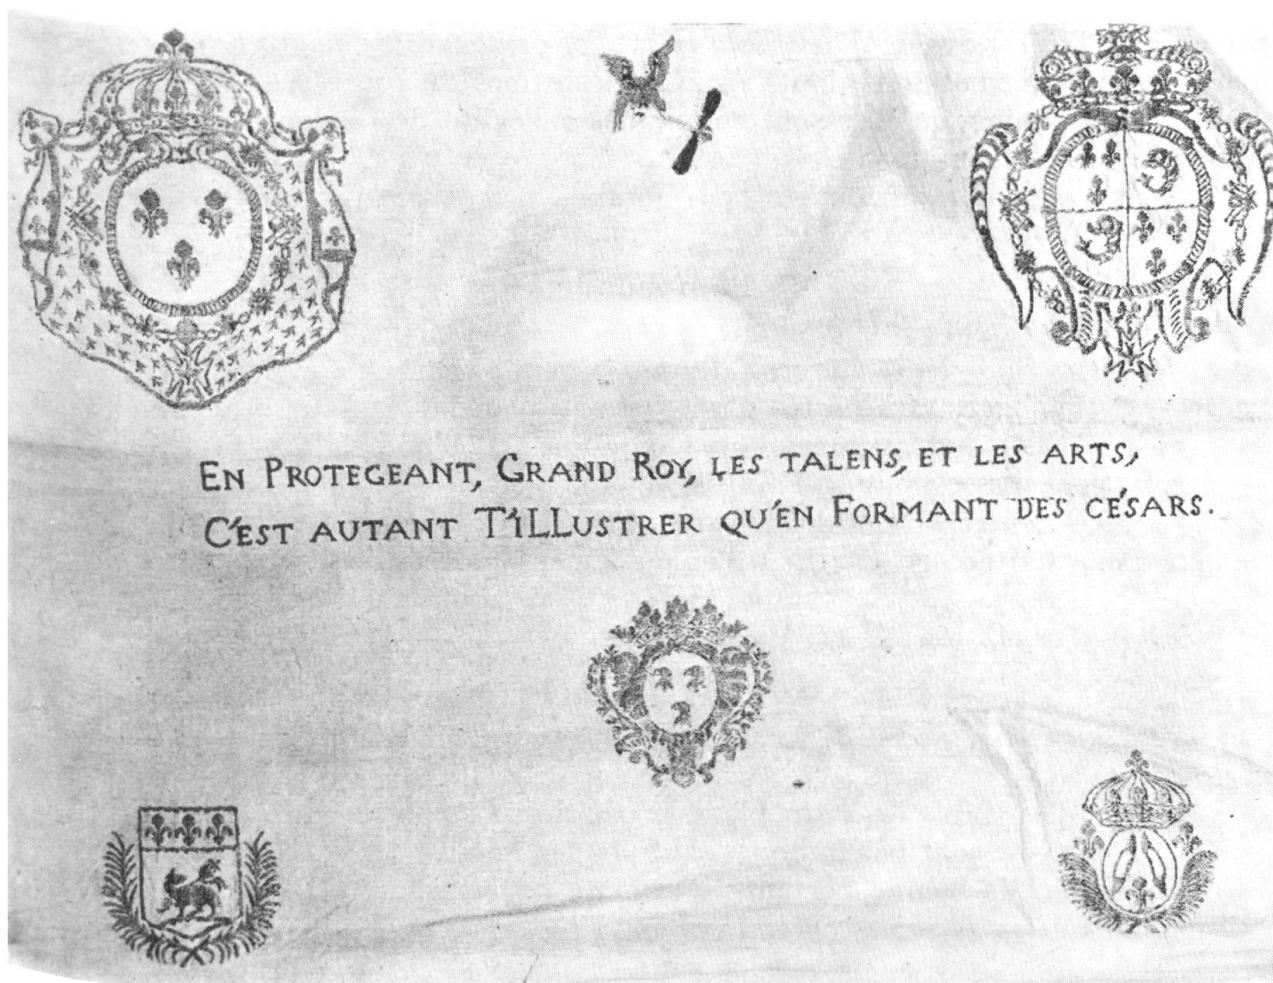 EN PROTEGEANT, GRAND ROY, LES TALENS, ET LES ARTS,
C'ÉST AUTANT T'ILLUSTRER QU'EN FORMANT DES CÉSARS.